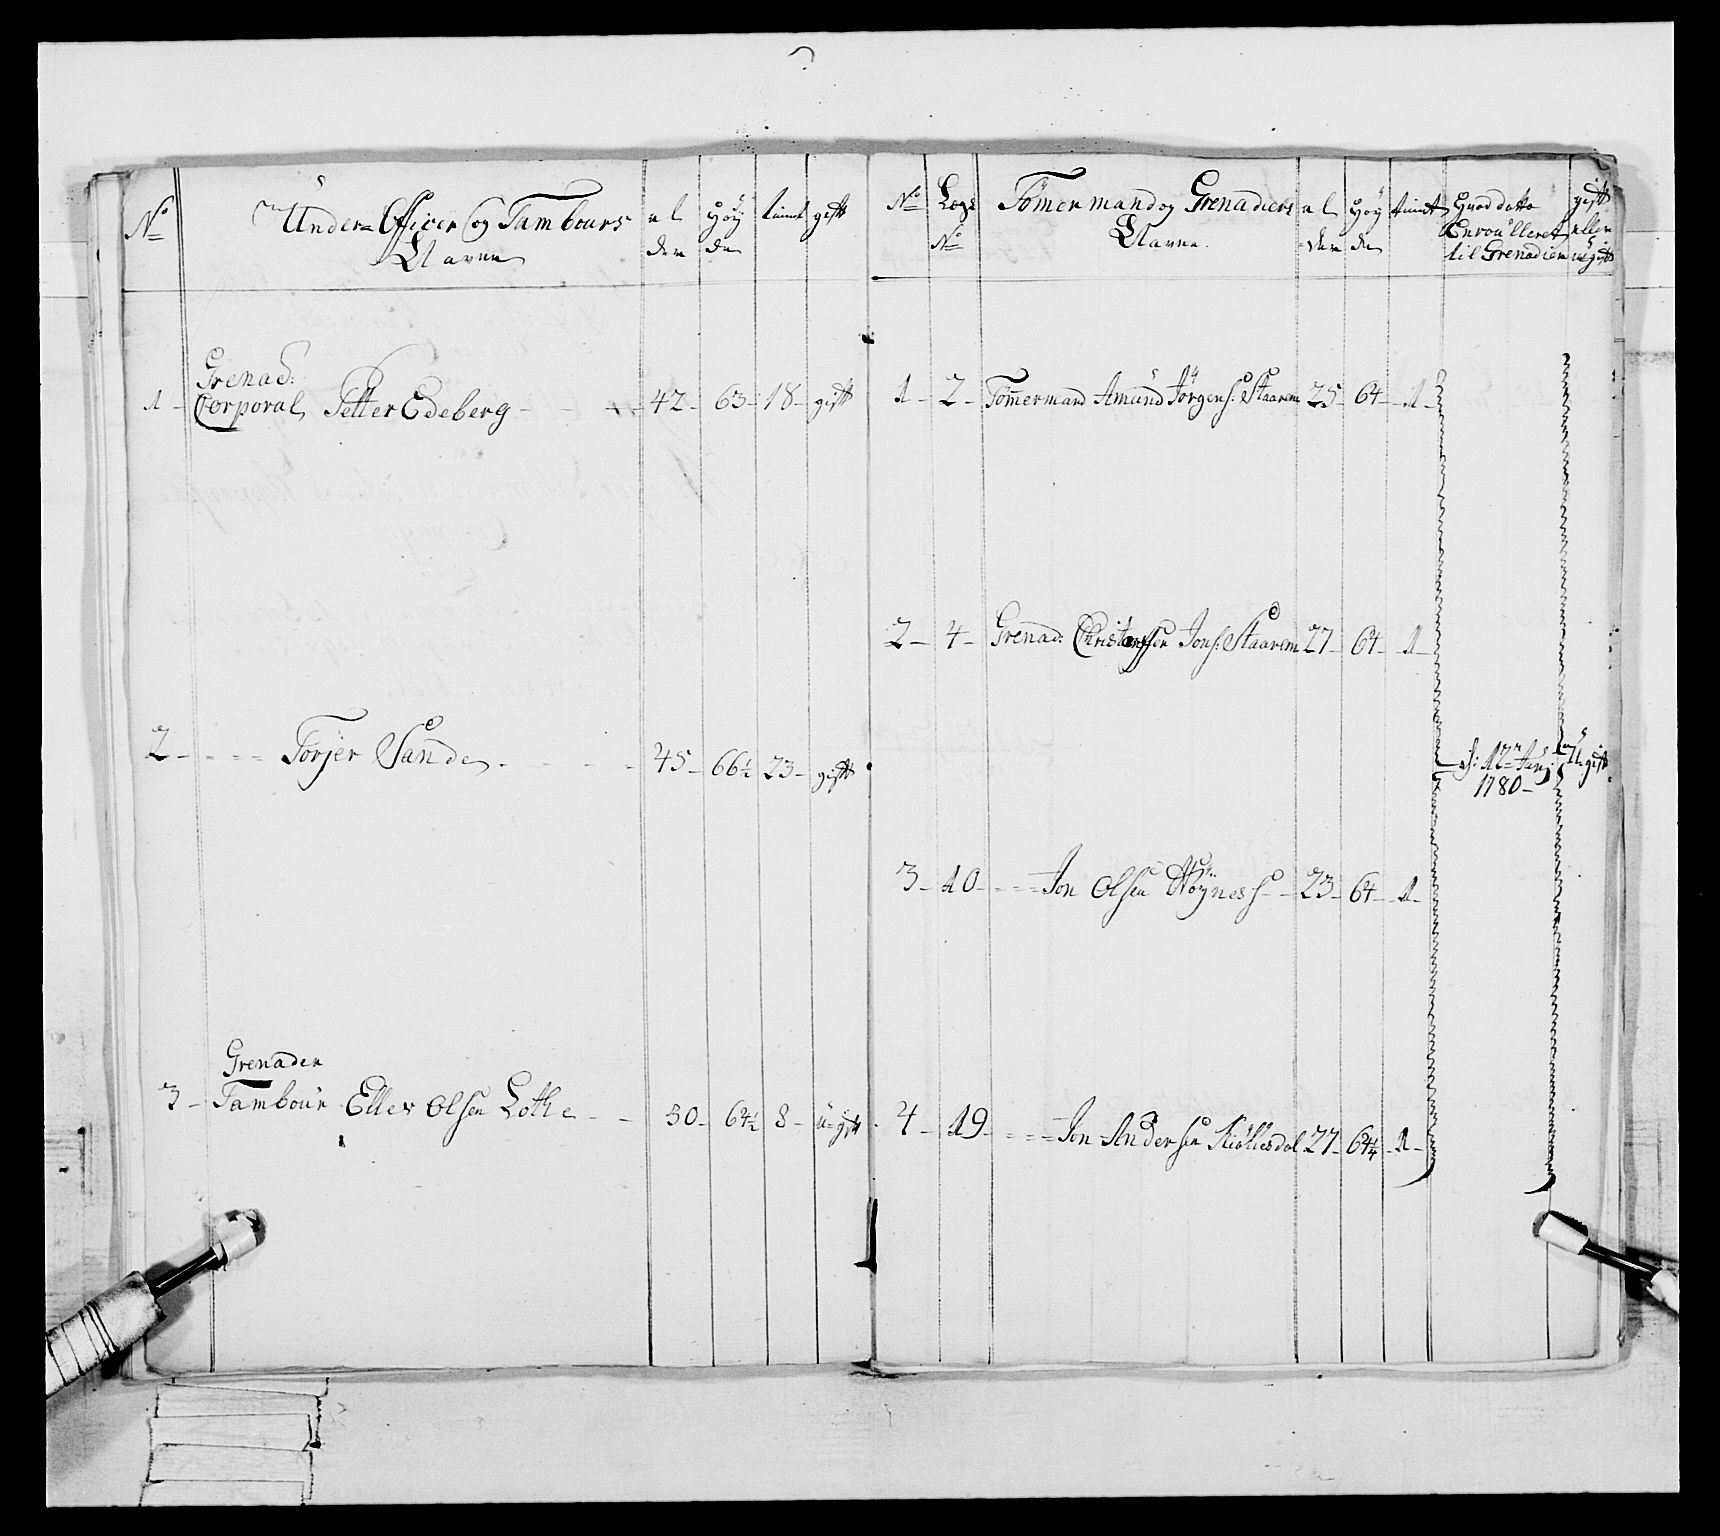 No
Under=Officer og Tambours
Navne
al
der
Høy
de
tient
gift
1 - Grenad:
Corporal Petter Edeberg - - - 42 - 63 - 18 - gift
2 - - - - Torjer Sande - - - - 45 - 66½ 23 - gift
Grenader
3 - Tambour Ellev Olsen Lothe - - 30 - 64½ 8 - ugift
No
Lægs
No
Tömermand og Grenadiers
Navne.
al
der
Høy
de
tient
Hvad dato
Enroulleret
til Grenadier
gift
eller
ugift
1 - 2 - Tömermand Amund Jörgens: Staarem 25 - 64 - 1 -
2 - 4 - Grenad: Jons: Staarem 27 - 64 - 1 -
d: 12te Juny
1780 -
Ugift
3 - 10 - - - - Jon Olsen Höyness - 23 - 64 - 1 -
4 - 19 - - - - Jon Andersen 27 - 64¼ - 1 -